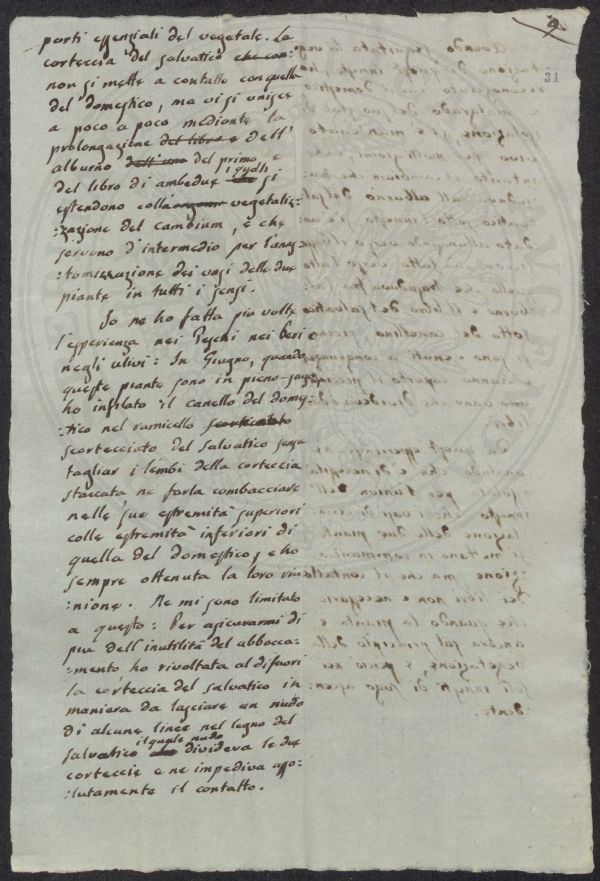 9
31
parti essenziali del vegetale. La
corteccia del salvatico che con:
non si mette a contatto con quella
del domestico, ma vi si unisce
a poco a poco mediante la
prolongazione del libro e dell'
alburno dell'uno del primo, e
i quali
del libro di ambedue si
estendono colla vegetaliz:
:zazione del cambium, e che
servono d'intermedio per l'anas:
:tomizzazione dei vasi delle due
piante in tutti i sensi.
Io ne ho fatta più volte
l'esperienza nei Peschi nei Peri
negli ulivi: In Giugno, quando
queste piante sono in pieno sugo,
ho infilato il canello del domes:
:tico nel ramicello scorticato
scortecciato del salvatico senza
tagliar i lembi della corteccia
staccata ne farla combacciare
nelle sue estremità superiori
colle estremità inferiori di
quella del domestico, e ho
sempre ottenuta la loro riu:
:nione. Ne mi sono limitato
a questo: Per assicurarmi di
più dell'inutilità del abbocca:
:mento ho rivoltata al di fuori
la corteccia del salvatico in
maniera da lasciare un nudo
di alcune linee nel legno del
il quale nudo
salvatico divideva le due
corteccie e ne impediva asso:
:lutamente il contatto.